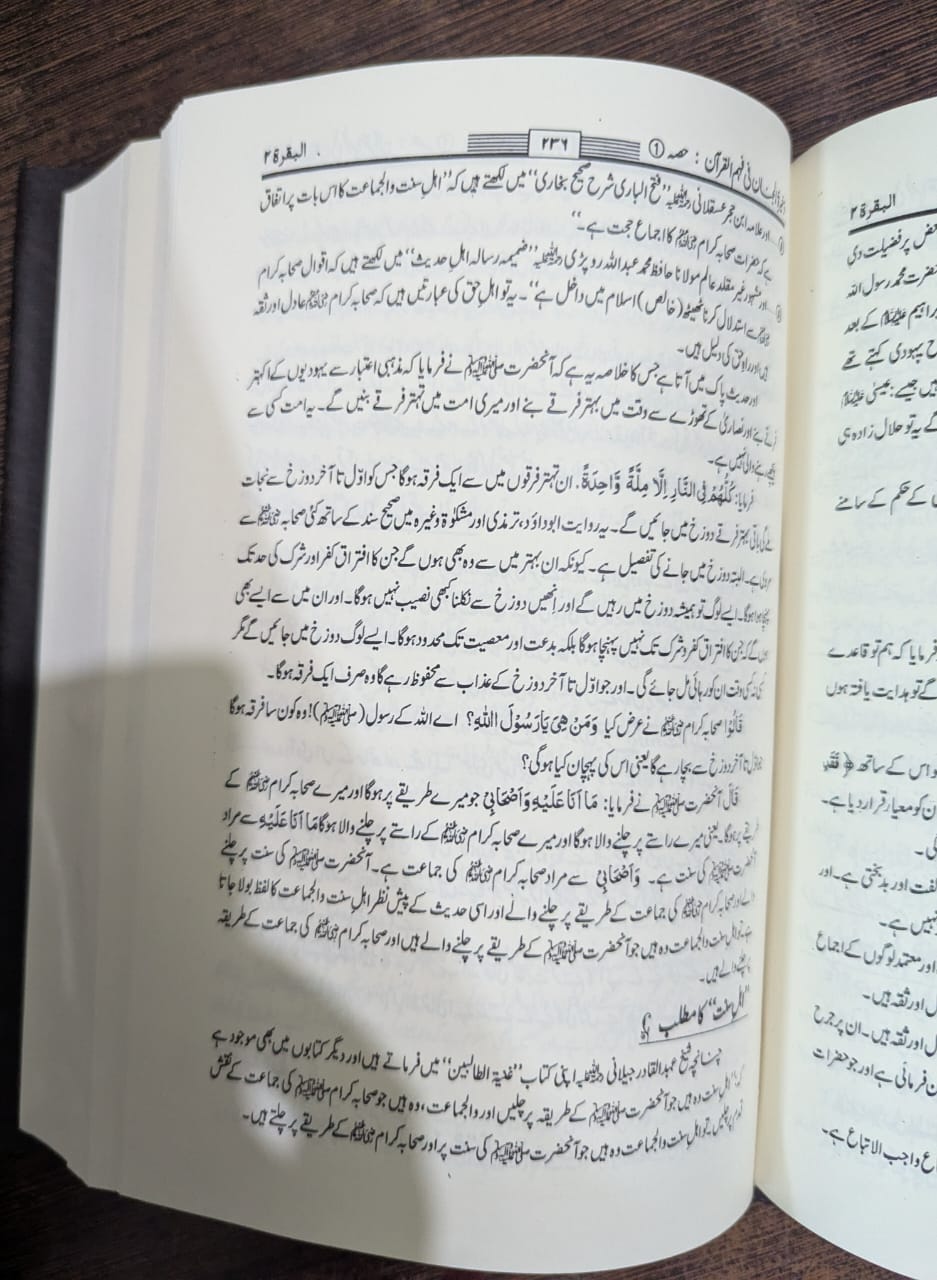 البقرة ٢
٢٣٦
ن فی فہم القرآن : حصہ ①
اور علامہ ابن حجر عسقلانی رحمۃ اللہ علیہ "فتح الباری شرح صحیح بخاری" میں لکھتے ہیں کہ "اہلِ سنت والجماعت کا اس بات پر اتفاق
ہے کہ حضرات صحابہ کرام رضی اللہ عنہم کا اجماع حجت ہے۔"
اور مشہور غیر مقلد عالم مولانا حافظ محمد عبد اللہ روپڑی رحمۃ اللہ علیہ "ضمیمہ رسالہ اہلِ حدیث" میں لکھتے ہیں کہ اقوالِ صحابہ کرام
سے استدلال کرنا ٹھیٹھ (خالص) اسلام میں داخل ہے"۔ یہ تو اہلِ حق کی عبارتیں ہیں کہ صحابہ کرام رضی اللہ عنہم عادل اور ثقہ
ہیں اور راہِ حق کی دلیل ہیں۔
اور حدیث پاک میں آتا ہے جس کا خلاصہ یہ ہے کہ آنحضرت صلی اللہ علیہ وسلم نے فرمایا کہ مذہبی اعتبار سے یہودیوں کے اکہتر
فرقے بنے اور نصاریٰ کے تھوڑے سے وقت میں بہتر فرقے بنے اور میری امت میں تہتر فرقے بنیں گے۔ یہ امت کسی سے
پیچھے رہنے والی نہیں ہے۔
فرمایا: كُلُّهُمْ فِي النَّارِ اِلَّا مِلَّةً وَّاحِدَةً. ان تہتر فرقوں میں سے ایک فرقہ ہوگا جس کو اوّل تا آخر دوزخ سے نجات
ملے گی باقی بہتر فرقے دوزخ میں جائیں گے۔ یہ روایت ابوداؤد، ترمذی اور مشکوٰۃ وغیرہ میں صحیح سند کے ساتھ کئی صحابہ رضی اللہ عنہم سے
مروی ہے۔ البتہ دوزخ میں جانے کی تفصیل ہے۔ کیونکہ ان بہتر میں سے وہ بھی ہوں گے جن کا افتراق کفر اور شرک کی حد تک
پہنچا ہوا ہوگا۔ ایسے لوگ تو ہمیشہ دوزخ میں رہیں گے اور اِنھیں دوزخ سے نکلنا کبھی نصیب نہیں ہوگا۔ اور ان میں سے ایسے بھی
ہوں گے کہ جن کا افتراق کفر و شرک تک نہیں پہنچا ہوگا بلکہ بدعت اور معصیت تک محدود ہوگا۔ ایسے لوگ دوزخ میں جائیں گے مگر
کسی نہ کسی وقت ان کو رہائی مل جائے گی۔ اور جو اوّل تا آخر دوزخ کے عذاب سے محفوظ رہے گا وہ صرف ایک فرقہ ہوگا۔
قَالُوْا صحابہ کرام رضی اللہ عنہم نے عرض کیا وَمَنْ هِىَ يَارَسُوْلَ اللهِ؟ اے اللہ کے رسول (صلی اللہ علیہ وسلم)! وہ کون سا فرقہ ہوگا
جو اوّل تا آخر دوزخ سے بچا رہے گا یعنی اس کی پہچان کیا ہوگی؟
قَالَ آنحضرت صلی اللہ علیہ وسلم نے فرمایا: مَا اَنَا عَلَيْهِ وَاَصْحَابِىْ جو میرے طریقے پر ہوگا اور میرے صحابہ کرام رضی اللہ عنہم کے
طریقے پر ہوگا۔ یعنی میرے راستے پر چلنے والا ہوگا اور میرے صحابہ کرام رضی اللہ عنہم کے راستے پر چلنے والا ہوگا مَا اَنَا عَلَيْهِ سے مراد
آنحضرت صلی اللہ علیہ وسلم کی سنت ہے۔ وَاَصْحَابِىْ سے مراد صحابہ کرام رضی اللہ عنہم کی جماعت ہے۔ آنحضرت صلی اللہ علیہ وسلم کی سنت پر چلنے
والے اور صحابہ کرام رضی اللہ عنہم کی جماعت کے طریقے پر چلنے والے اور اسی حدیث کے پیش نظر اہلِ سنت والجماعت کا لفظ بولا جاتا
ہے۔ تو اہلِ سنت والجماعت وہ ہیں جو آنحضرت صلی اللہ علیہ وسلم کے طریقے پر چلنے والے ہیں اور صحابہ کرام رضی اللہ عنہم کی جماعت کے طریقہ
پر چلنے والے ہیں۔
"اہلِ سنت" کا مطلب
چنانچہ شیخ عبد القادر جیلانی رحمۃ اللہ علیہ اپنی کتاب "غنیۃ الطالبین" میں فرماتے ہیں اور دیگر کتابوں میں بھی موجود ہے
کہ "اہلِ سنت وہ ہیں جو آنحضرت صلی اللہ علیہ وسلم کے طریقہ پر چلیں اور والجماعت، وہ ہیں جو صحابہ کرام رضی اللہ عنہم کی جماعت کے نقش
قدم پر چلیں۔ تو اہلِ سنت والجماعت وہ ہیں جو آنحضرت صلی اللہ علیہ وسلم کی سنت پر اور صحابہ کرام رضی اللہ عنہم کے طریقے پر چلتے ہیں۔
البقرة ٢
پر فضیلت دی
حضرت محمد رسول اللہ
کے بعد
یہودی کہتے تھے
ہیں جیسے: عیسیٰ علیہ السلام
گے یہ تو حلال زادہ ہی
کے حکم کے سامنے
فرمایا کہ ہم تو قاعدے
گے تو ہدایت یافتہ ہوں
اس کے ساتھ ﴿ فَقَدِ
ان کو معیار قرار دیا ہے۔
گی۔
اور بدبختی ہے۔ اور
نہیں ہے۔
اور معتمد لوگوں کے اجماع
اور ثقہ ہیں۔
اور ثقہ ہیں۔ ان پر جرح
فرمائی ہے اور جو حضرات
واجب الاتباع ہے۔